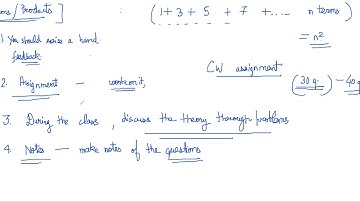 ms / Products ] : ( 1 + 3 + 5 + 7 + ..... n terms )
1 You should raise a hand. = n²
feedback
CW assignment
2. Assignment — work on it, ( 30 q. ) — 40 q
3. During the class, discuss the theory through problems
4. Notes — make notes of the questions